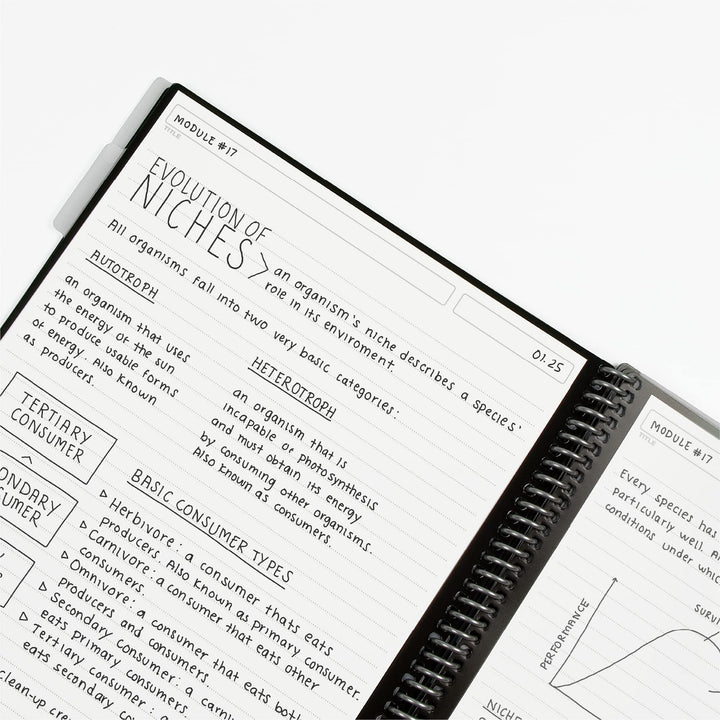 MODULE #17
TITLE
01.25
EVOLUTION OF
NICHES > an organism's niche describes a species'
role in its enviroment.
All organisms fall into two very basic categories:
AUTOTROPH
an organism that uses
the energy of the sun
to produce usable forms
of energy. Also known
as producers.
HETEROTROPH
an organism that is
incapable of photosynthesis
and must obtain its energy
by consuming other organisms.
Also known as consumers.
TERTIARY
CONSUMER
ONDARY
SUMER
BASIC CONSUMER TYPES
▹ Herbivore: a consumer thats eats
producers. Also known as primary consumer.
▹ Carnivore: a consumer that eats other
consumers.
▹ Omnivore: a consumer that eats both
producers and consumers
▹ Secondary Consumer: a
eats primary consumers.
▹ Tertiary consumer: a
eats secondary
clean-up
MODULE #17
TITLE
Every species has
particularly well.
conditions under
PERFORMANCE